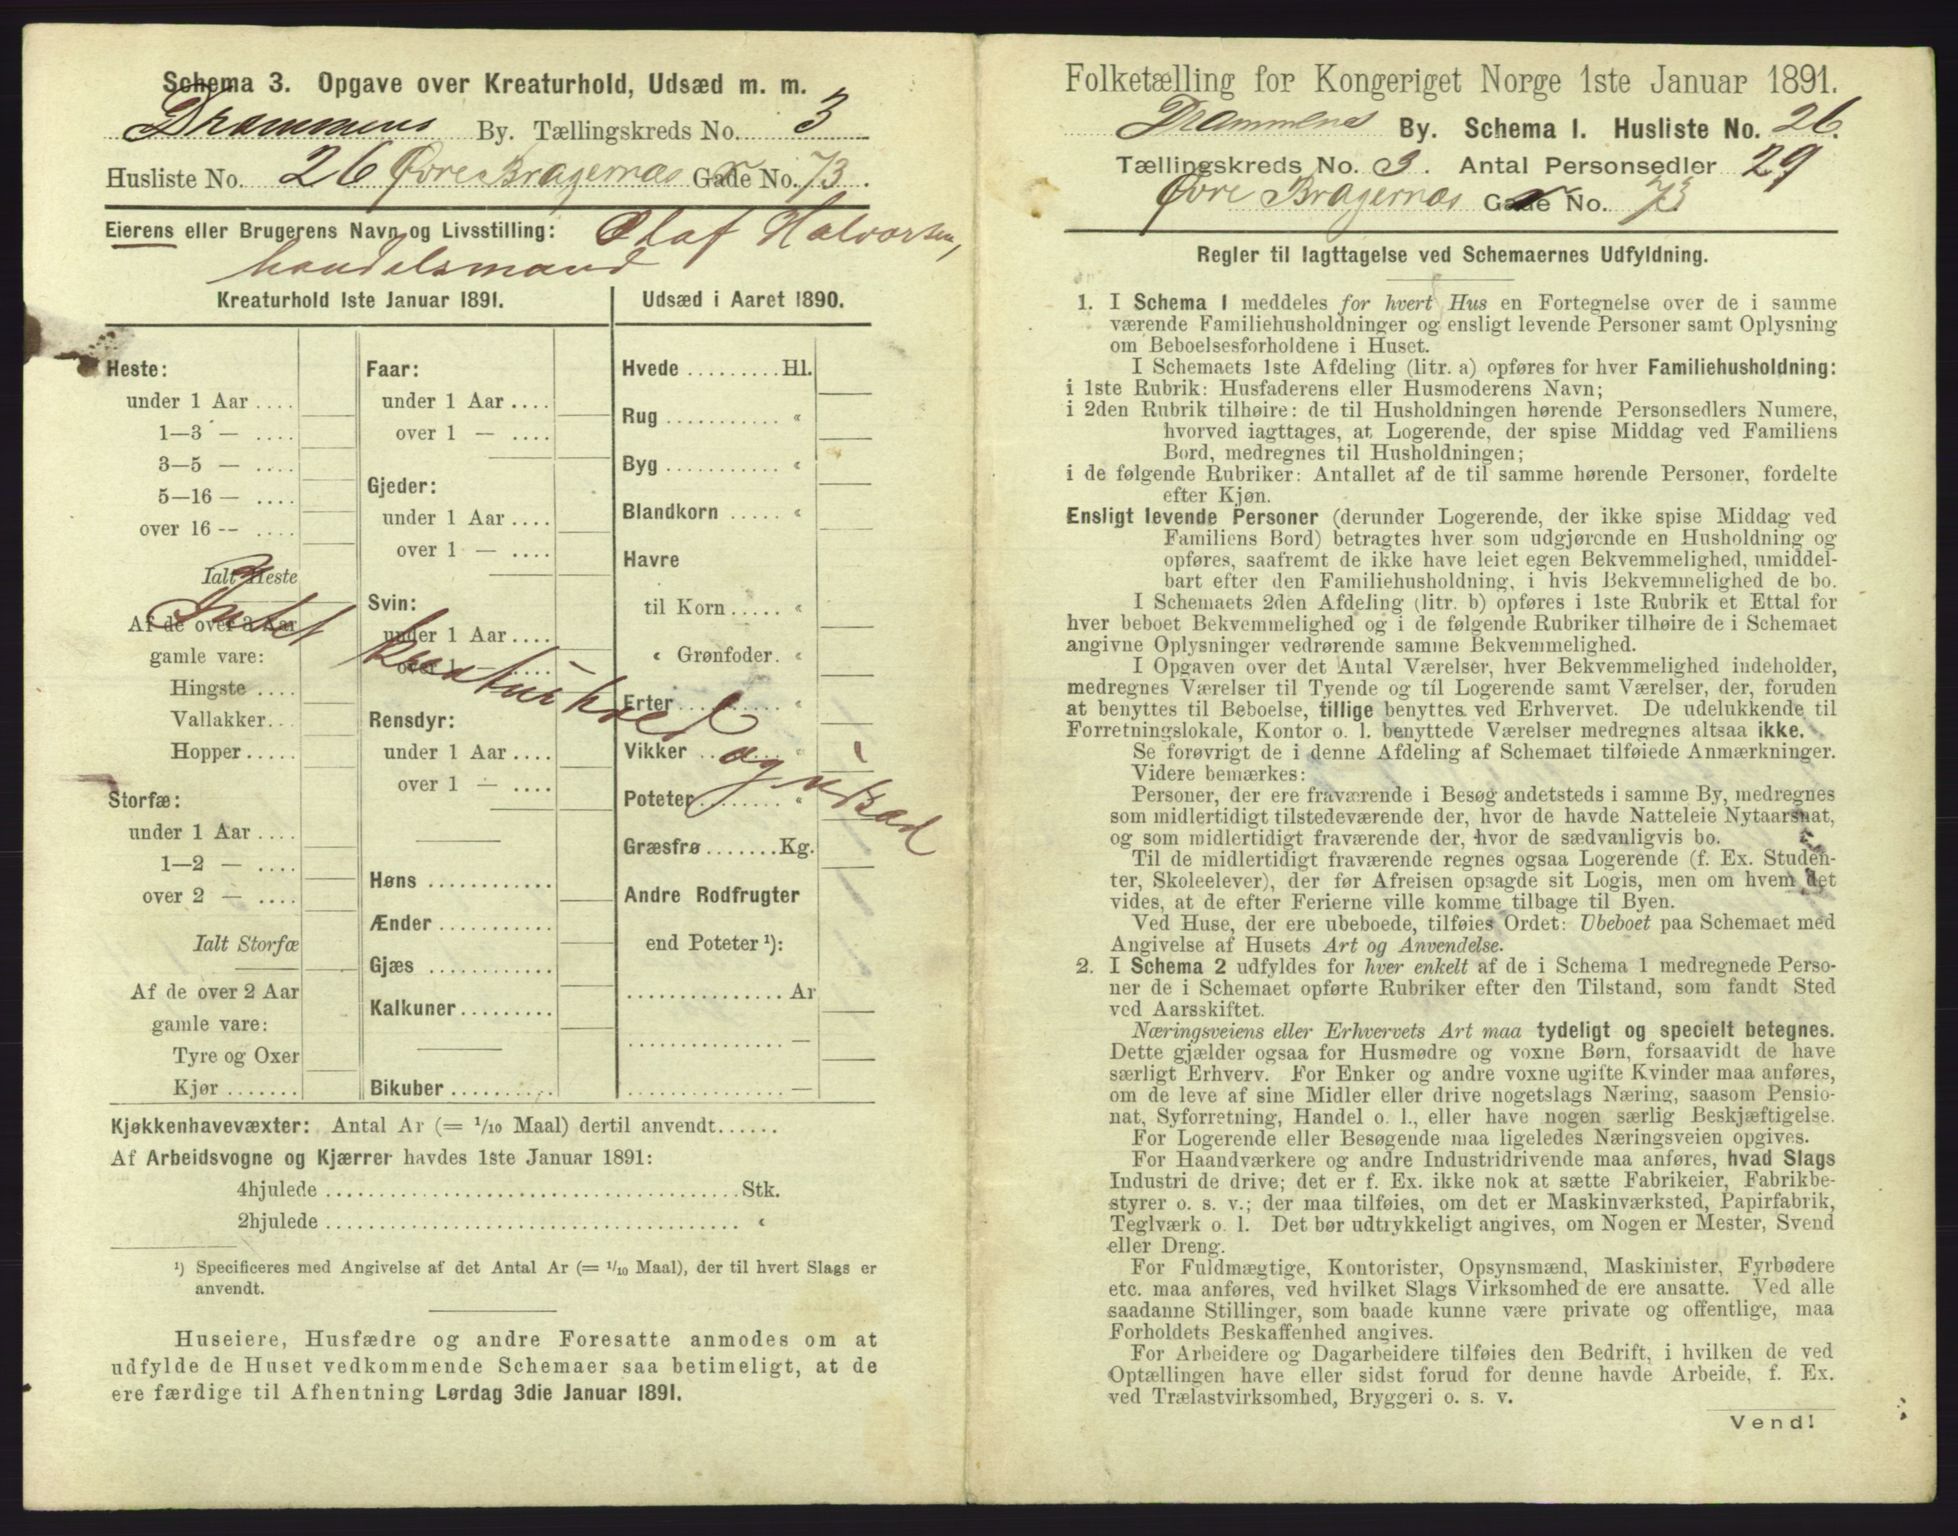 Schema 3. Opgave over Kreaturhold, Udsæd m. m.
Drammens By. Tællingskreds No. 3
Husliste No. 26 Øvre Bragernæs Gade No. 73.
Eierens eller Brugerens Navn og Livsstilling: Olaf Halvorsen,
handelsmand
Kreaturhold 1ste Januar 1891.
Heste:
under 1 Aar ....
1—3 — ....
3—5 — ....
5—16 — ....
over 16 -- ....
Ialt Heste
Af de over 3 Aar
gamle vare:
Hingste ....
Vallakker...
Hopper.....
Storfæ:
under 1 Aar ....
1—2 — ....
over 2 — ....
Ialt Storfæ
Af de over 2 Aar
gamle vare:
Tyre og Oxer
Kjør .......
Faar:
under 1 Aar ....
over 1 — ....
Gjeder:
under 1 Aar ....
over 1 — ....
Svin:
under 1 Aar ....
over 1 — ....
Rensdyr:
under 1 Aar ....
over 1 — ....
Høns ............
Ænder ...........
Gjæs ............
Kalkuner.........
Bikuber ..........
Udsæd i Aaret 1890.
Hvede .........Hl.
Rug ........... “
Byg ........... “
Blandkorn ..... “
Havre
til Korn ..... “
“ Grønfoder. “
Erter .......... “
Vikker ......... “
Poteter......... “
Græsfrø .......Kg.
Andre Rodfrugter
end Poteter ¹):
............... Ar
............... —
............... —
Intet kreaturhold og udsæd
Kjøkkenhavevæxter: Antal Ar (= 1/10 Maal) dertil anvendt......
Af Arbeidsvogne og Kjærrer havdes 1ste Januar 1891:
4hjulede ........................................Stk.
2hjulede ........................................ “
¹) Specificeres med Angivelse af det Antal Ar (= 1/10 Maal), der til hvert Slags er
anvendt.
Huseiere, Husfædre og andre Foresatte anmodes om at
udfylde de Huset vedkommende Schemaer saa betimeligt, at de
ere færdige til Afhentning Lørdag 3die Januar 1891.
Folketælling for Kongeriget Norge 1ste Januar 1891.
Drammens By. Schema I. Husliste No. 26.
Tællingskreds No. 3. Antal Personsedler 29
Øvre Bragernæs Gade No. 73
Regler til Iagttagelse ved Schemaernes Udfyldning.
1. I Schema I meddeles for hvert Hus en Fortegnelse over de i samme
værende Familiehusholdninger og ensligt levende Personer samt Oplysning
om Beboelsesforholdene i Huset.
I Schemaets 1ste Afdeling (litr. a) opføres for hver Familiehusholdning:
i 1ste Rubrik: Husfaderens eller Husmoderens Navn;
i 2den Rubrik tilhøire: de til Husholdningen hørende Personsedlers Numere,
hvorved iagttages, at Logerende, der spise Middag ved Familiens
Bord, medregnes til Husholdningen;
i de følgende Rubriker: Antallet af de til samme hørende Personer, fordelte
efter Kjøn.
Ensligt levende Personer (derunder Logerende, der ikke spise Middag ved
Familiens Bord) betragtes hver som udgjørende en Husholdning og
opføres, saafremt de ikke have leiet egen Bekvemmelighed, umiddel-
bart efter den Familiehusholdning, i hvis Bekvemmelighed de bo.
I Schemaets 2den Afdeling (litr. b) opføres i 1ste Rubrik et Ettal for
hver beboet Bekvemmelighed og i de følgende Rubriker tilhøire de i Schemaet
angivne Oplysninger vedrørende samme Bekvemmelighed.
I Opgaven over det Antal Værelser, hver Bekvemmelighed indeholder,
medregnes Værelser til Tyende og til Logerende samt Værelser, der, foruden
at benyttes til Beboelse, tillige benyttes ved Erhvervet. De udelukkende til
Forretningslokale, Kontor o. l. benyttede Værelser medregnes altsaa ikke.
Se forøvrigt de i denne Afdeling af Schemaet tilføiede Anmærkninger.
Videre bemærkes:
Personer, der ere fraværende i Besøg andetsteds i samme By, medregnes
som midlertidigt tilstedeværende der, hvor de havde Natteleie Nytaarsnat,
og som midlertidigt fraværende der, hvor de sædvanligvis bo.
Til de midlertidigt fraværende regnes ogsaa Logerende (f. Ex. Studen-
ter, Skoleelever), der før Afreisen opsagde sit Logis, men om hvem det
vides, at de efter Ferierne ville komme tilbage til Byen.
Ved Huse, der ere ubeboede, tilføies Ordet: Ubeboet paa Schemaet med
Angivelse af Husets Art og Anvendelse.
2. I Schema 2 udfyldes for hver enkelt af de i Schema 1 medregnede Perso-
ner de i Schemaet opførte Rubriker efter den Tilstand, som fandt Sted
ved Aarsskiftet.
Næringsveiens eller Erhvervets Art maa tydeligt og specielt betegnes.
Dette gjælder ogsaa for Husmødre og voxne Børn, forsaavidt de have
særligt Erhverv. For Enker og andre voxne ugifte Kvinder maa anføres,
om de leve af sine Midler eller drive nogetslags Næring, saasom Pensio-
nat, Syforretning, Handel o. l., eller have nogen særlig Beskjæftigelse.
For Logerende eller Besøgende maa ligeledes Næringsveien opgives.
For Haandværkere og andre Industridrivende maa anføres, hvad Slags
Industri de drive; det er f. Ex. ikke nok at sætte Fabrikeier, Fabrikbe-
styrer o. s. v.; der maa tilføies, om det er Maskinværksted, Papirfabrik,
Teglværk o. l. Det bør udtrykkeligt angives, om Nogen er Mester, Svend
eller Dreng.
For Fuldmægtige, Kontorister, Opsynsmænd, Maskinister, Fyrbødere
etc. maa anføres, ved hvilket Slags Virksomhed de ere ansatte. Ved alle
saadanne Stillinger, som baade kunne være private og offentlige, maa
Forholdets Beskaffenhed angives.
For Arbeidere og Dagarbeidere tilføies den Bedrift, i hvilken de ved
Optællingen have eller sidst forud for denne havde Arbeide, f. Ex.
ved Trælastvirksomhed, Bryggeri o. s. v.
Vend!